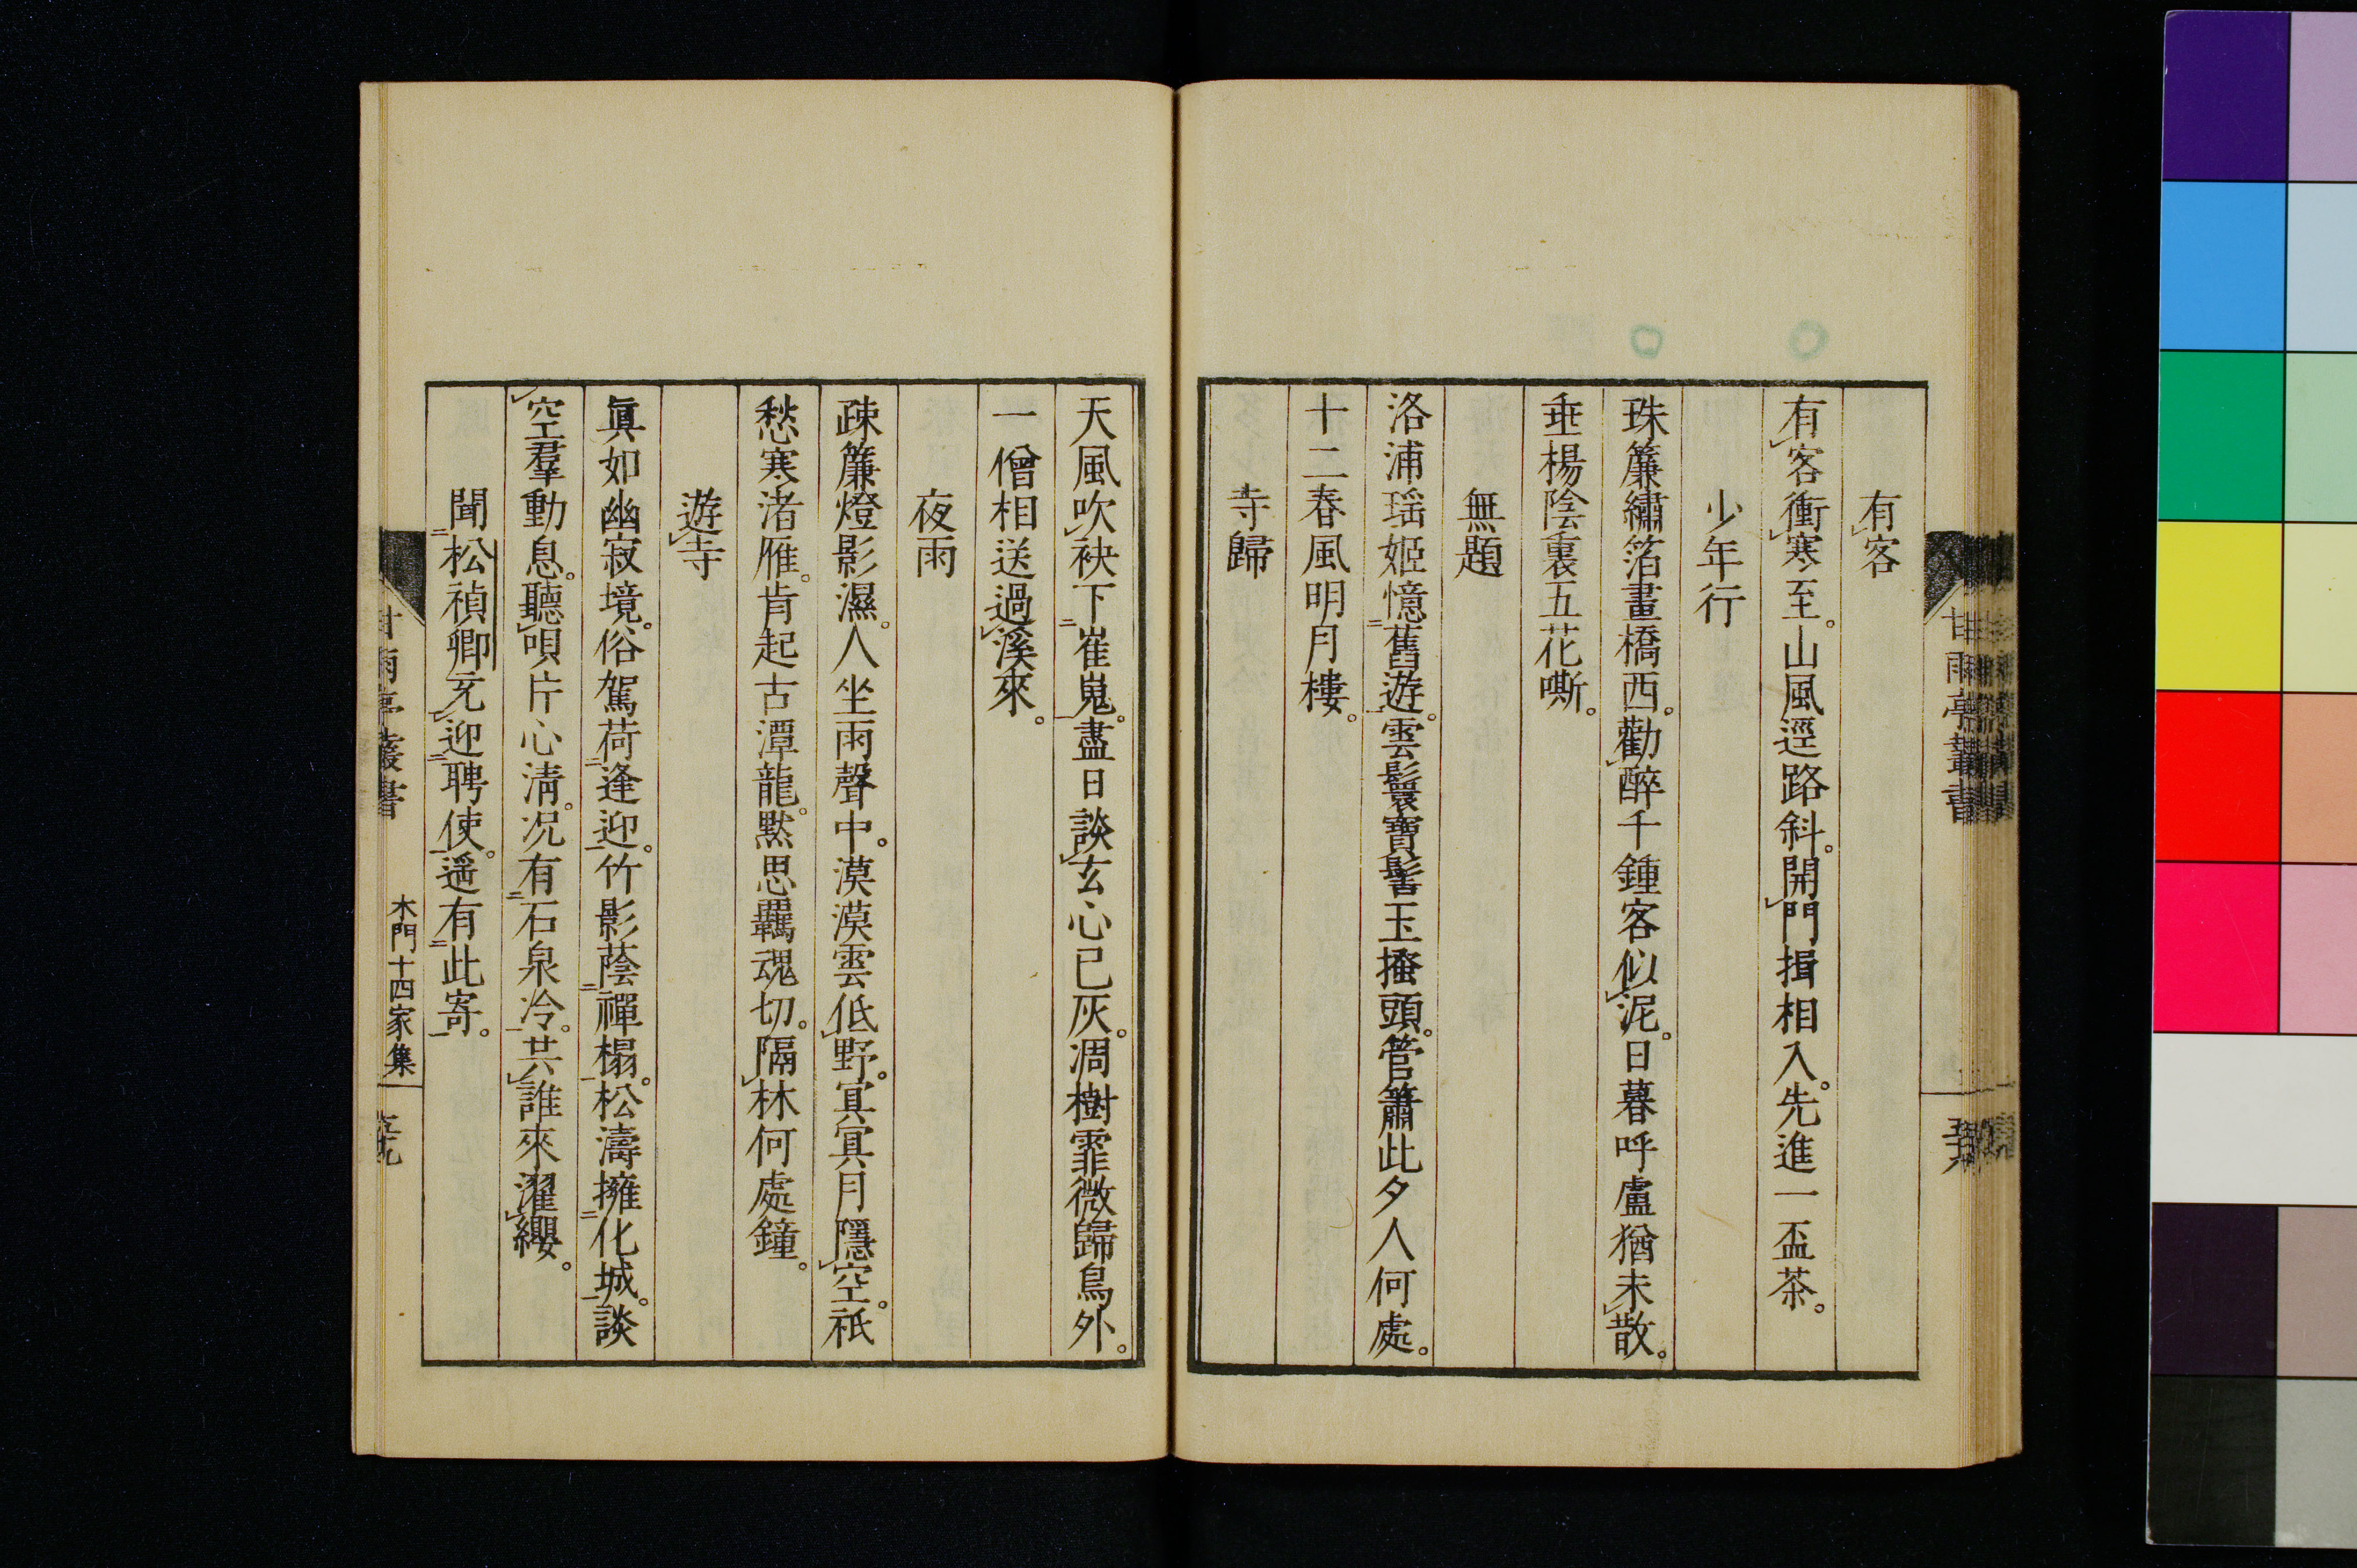 有客
有客衝寒至。山風逕路斜。開門揖相入。先進一盃茶。
少年行
珠簾繡箔畫橋西。勸醉千鍾客似泥。日暮呼盧猶未散。
垂楊陰裏五花嘶。
無題
洛浦瑶姬憶舊遊。雲鬟寶髻玉搔頭。管簫此夕人何處。
十二春風明月樓。
寺歸
天風吹袂下崔嵬。盡日談玄心已灰。凋樹霏微歸鳥外。
一僧相送過溪來。
夜雨
疎簾燈影濕。人坐雨聲中。漠漠雲低野。冥冥月隱空。祇
愁寒渚雁。肯起古潭龍。默思羈魂切。隔林何處鐘。
遊寺
眞如幽寂境。俗駕荷逢迎。竹影蔭禪榻。松濤擁化城。談
空羣動息。聽唄片心淸。况有石泉冷。共誰來濯纓。
聞松禎卿充迎聘使。遥有此寄。
甘雨亭叢書
木門十四家集
甘雨亭叢書